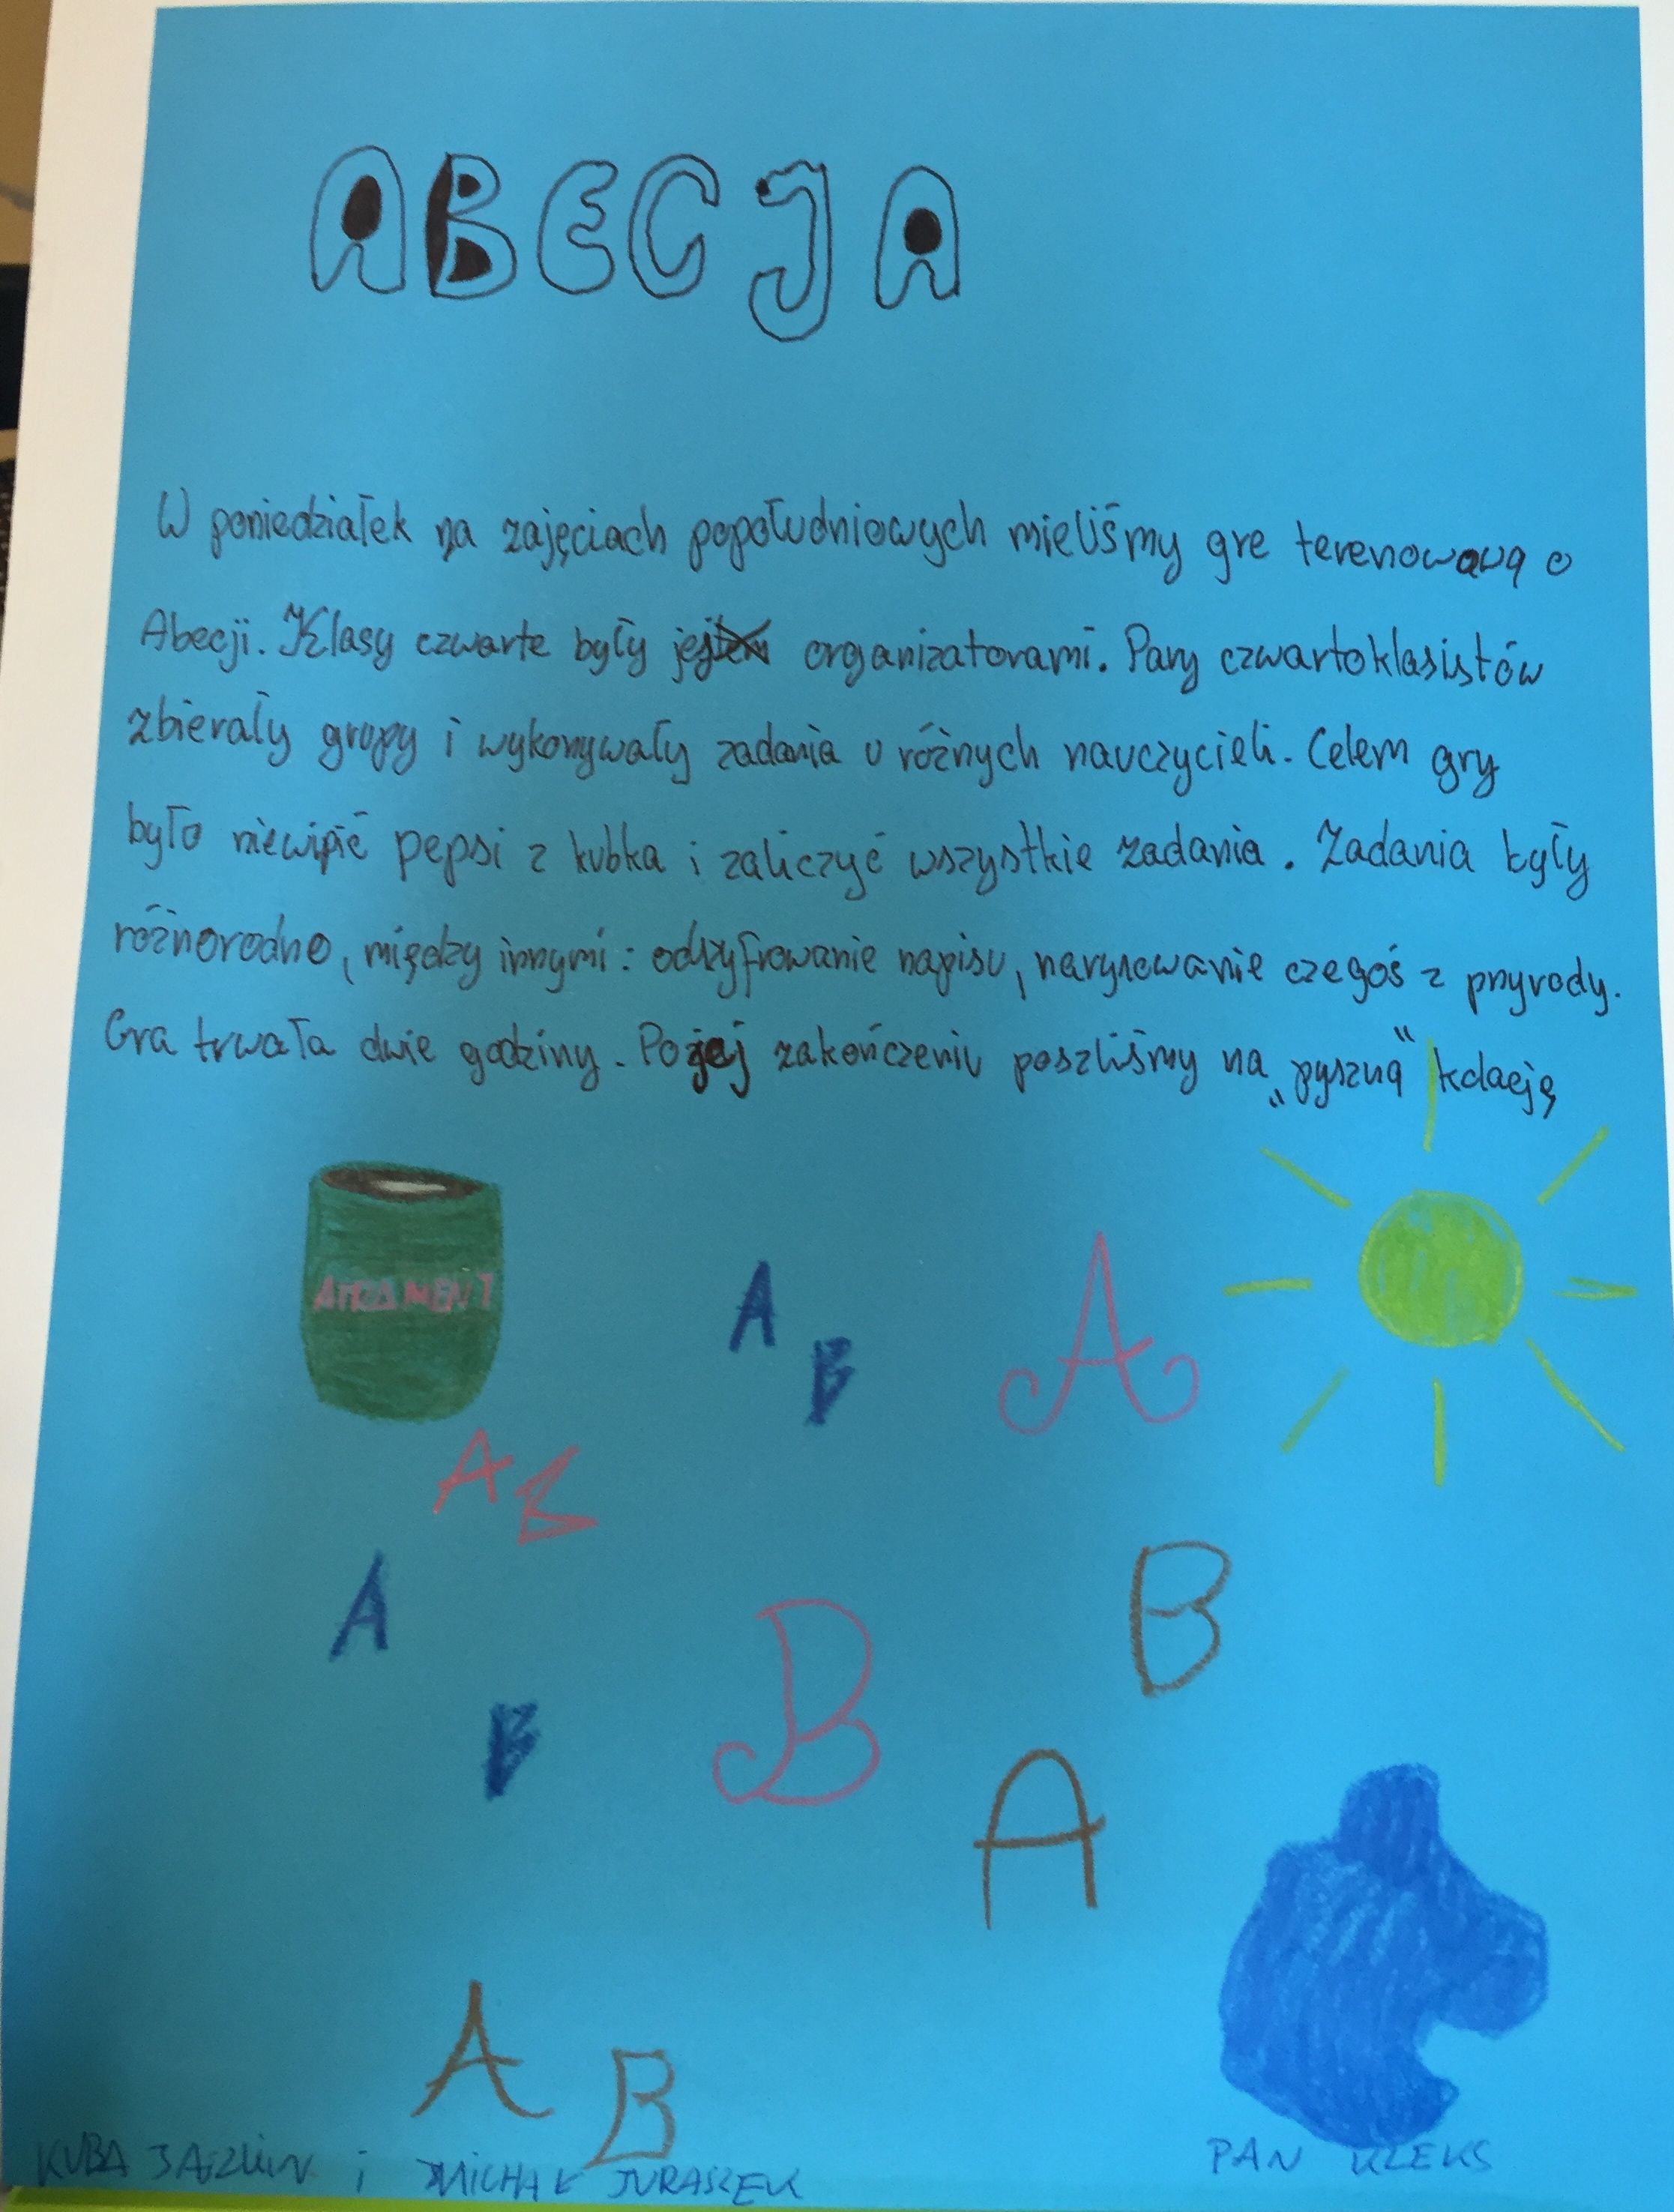 ABECJA
W poniedziałek na zajęciach popołudniowych mieliśmy gre terenową o
Abecji. Klasy czwarte były jej organizatorami. Pary czwartoklasistów
zbierały grupy i wykonywały zadania u różnych nauczycieli. Celem gry
było niewipić pepsi z kubka i zaliczyć wszystkie zadania. Zadania były
różnorodne, między innymi: odszyfrowanie napisu, narysowanie czegoś z przyrody.
Gra trwała dwie godziny. Po jej zakończeniu poszliśmy na „pyszną" kolację
ATRAMENT
A
B
A
A B
A
B
B
B
A
A B
KUBA i MICHAŁ JURASZEK
PAN KLEKS